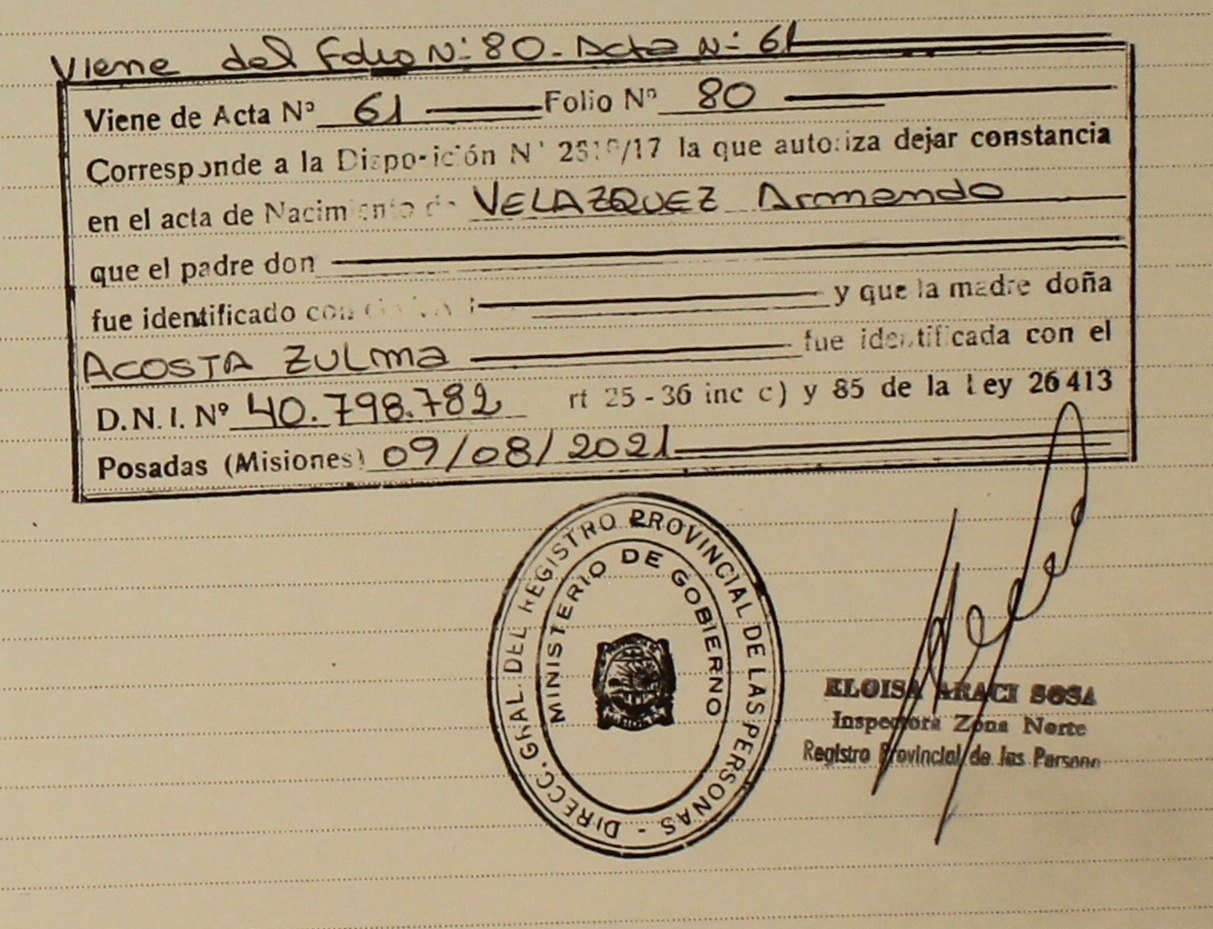 Viene del Folio Nº 80 - Acta Nº 61
Viene de Acta Nº 61 Folio Nº 80
Corresponde a la Disposición Nº /17 la que autoriza dejar constancia
en el acta de Nacimiento de VELAZQUEZ Armando
que el padre don
fue identificado con y que la madre doña
ACOSTA ZULMA fue identificada con el
D.N.I. Nº 40.798.782 rt 25 - 36 inc c) y 85 de la Ley 26413
Posadas (Misiones) 09/08/2021
DIRECC. GRAL. DEL REGISTRO PROVINCIAL DE LAS PERSONAS -
MINISTERIO DE GOBIERNO
ELOISA ARACI SOSA
Inspectora Zona Norte
Registro Provincial de las Persona